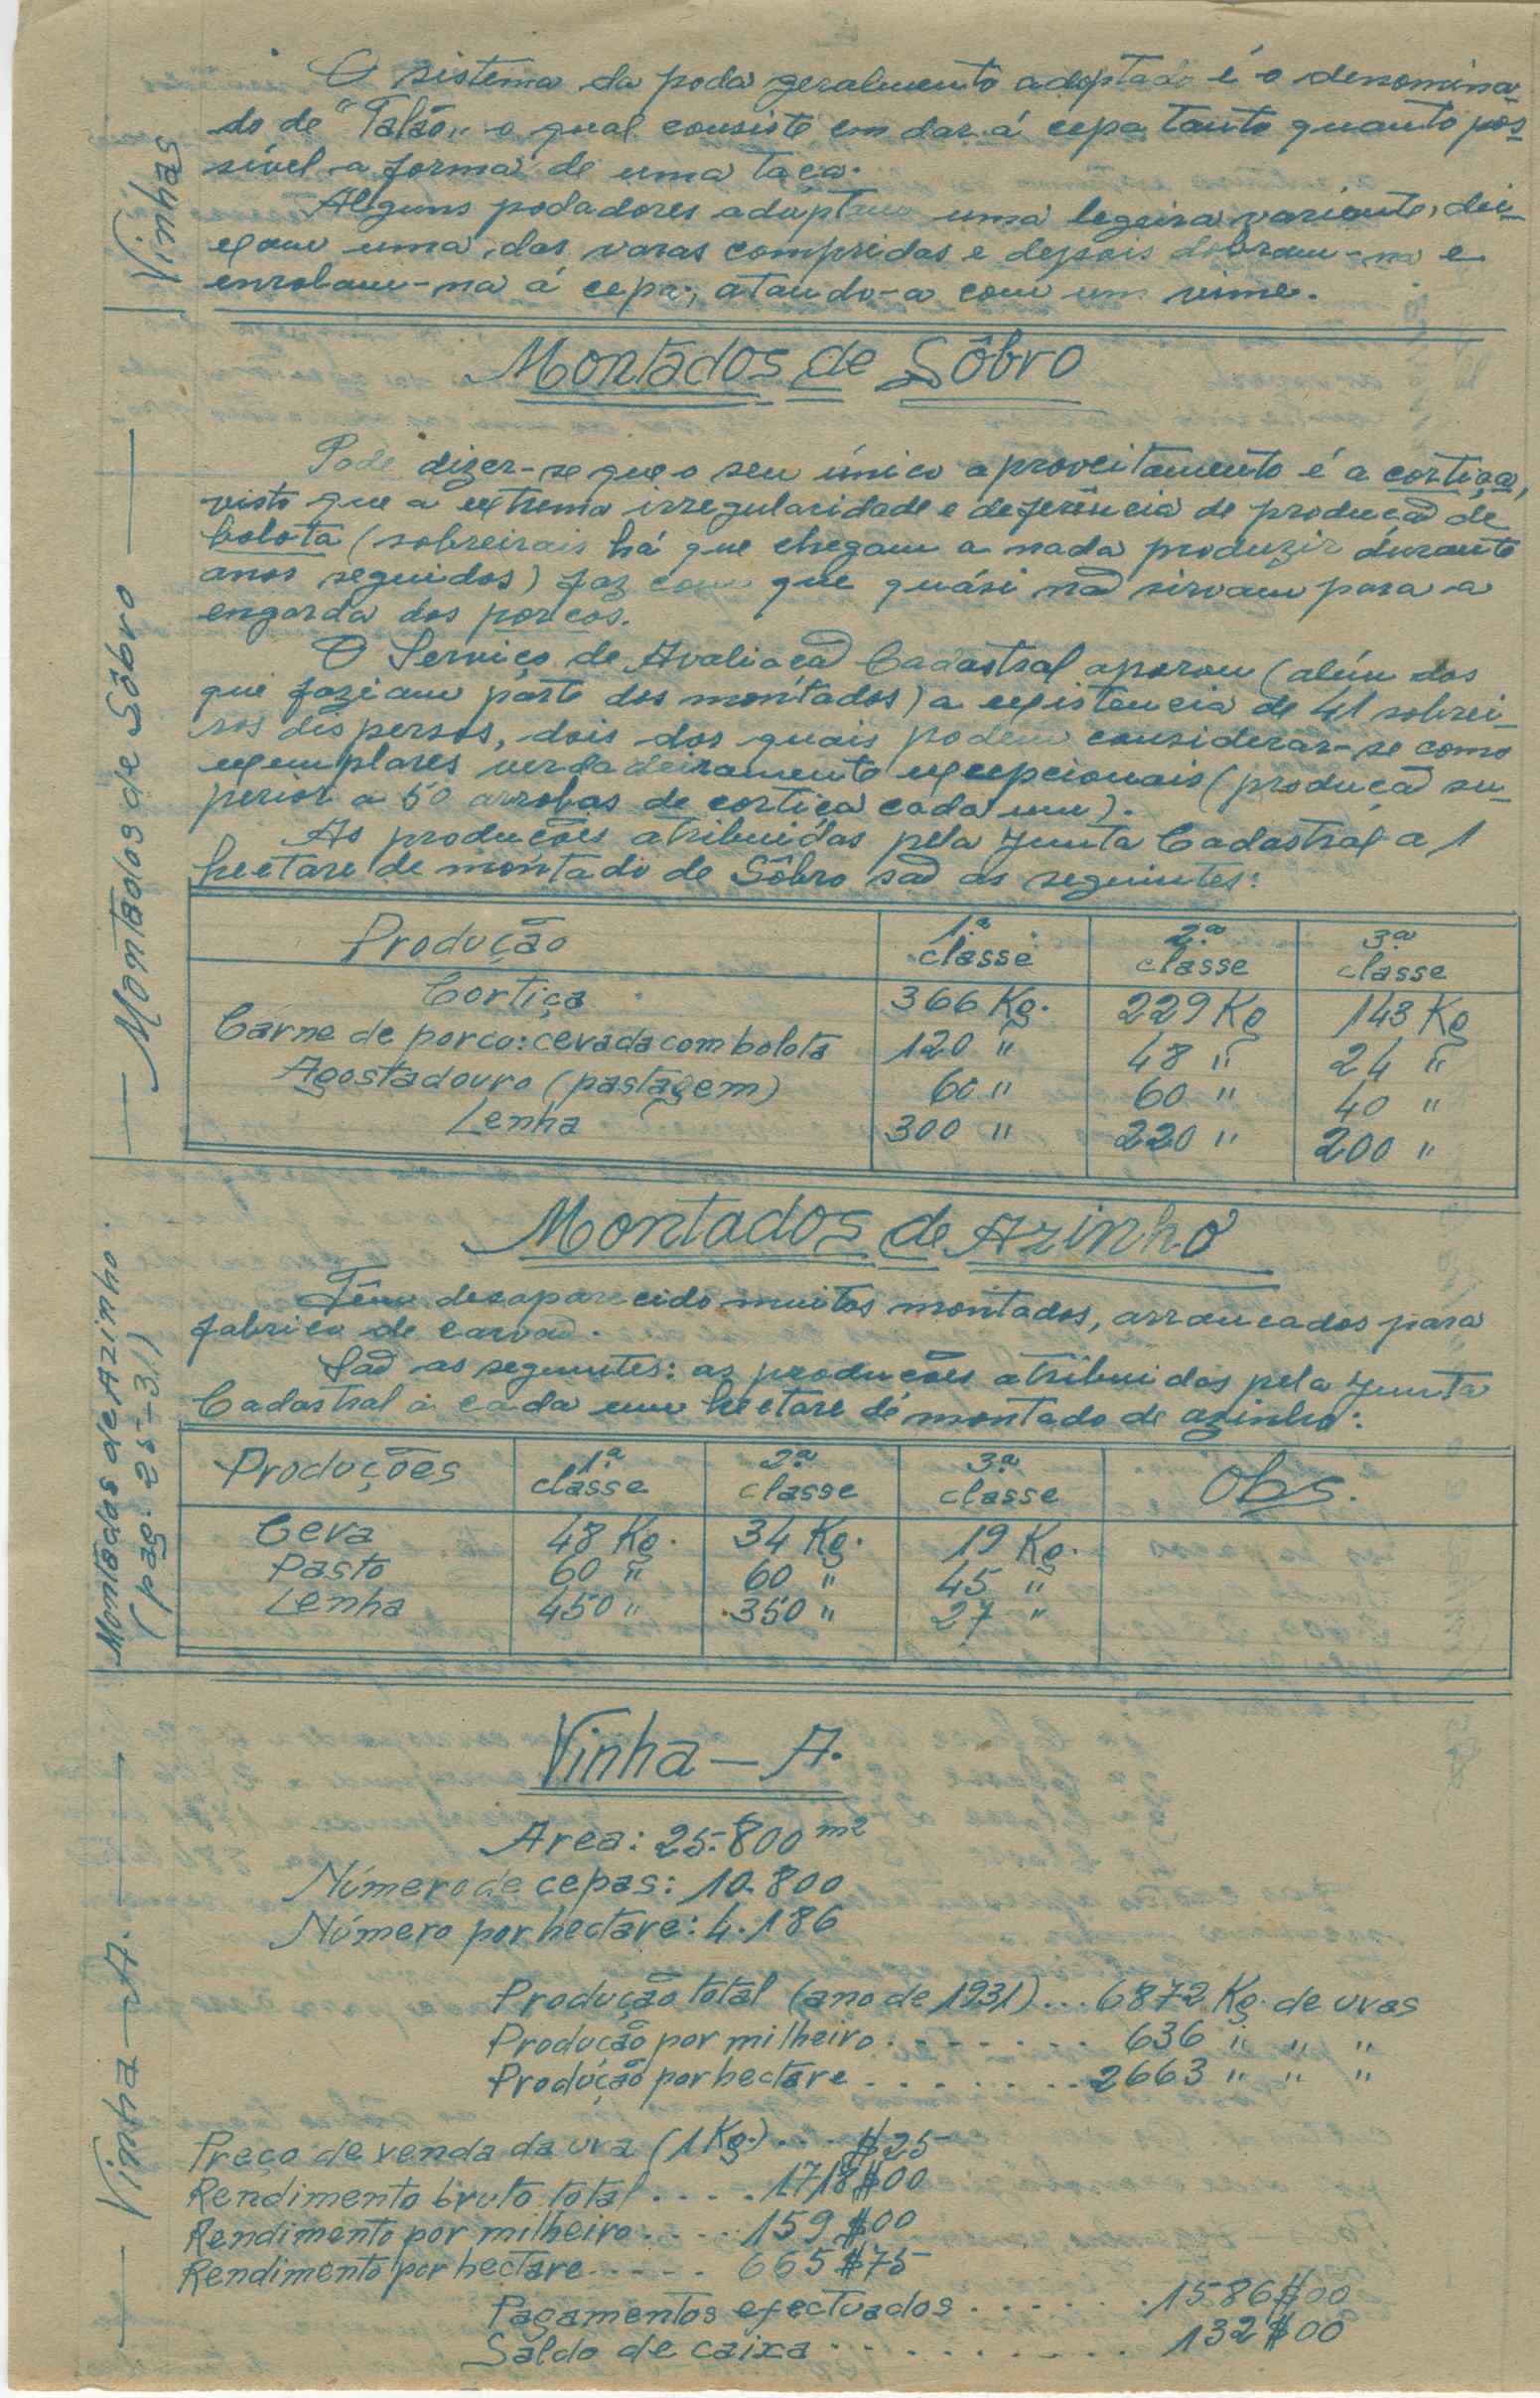 O sistema da poda geralmente adoptado é o denomina-
do de "Talão" o qual consiste em dar á cepa tanto quanto pos-
sível a forma de uma taça.
Alguns podadores adoptam uma legeira variante, dei-
xam uma das varas compridas e depois dobram-na e
enrolam-na á cepa, atando-a com um vime.
Vinhas
Montados de Sôbro
Pode dizer-se que o seu único aproveitamento é a cortiça,
visto que a extrema irregularidade e deferência de produção de
bolota (sobreirais há que chegam a nada produzir durante
anos seguidos) faz com que quási não sirvam para a
engorda dos porcos.
O Serviço de Avaliação Cadastral aporou (além dos
que faziam parte dos montados) a existencia de 41 sobrei-
ros dispersos, dois dos quais podem considerar-se como
exemplares verdadeiramente excepcionais (produção su-
perior a 50 arrobas de cortiça cada um).
As produções atribuidas pela Junta Cadastral a 1
hectare de montado de Sôbro são as seguintes:
— Montados de Sôbro —
Produção 1.ª classe 2.ª classe 3.ª classe
Cortiça 366 Kg. 229 Kg 143 Kg
Carne de porco: cevada com bolota 120 " 48 " 24 "
Agostadouro (pastagem) 60 " 60 " 40 "
Lenha 300 " 220 " 200 "
Montados de Azinho
Têm desaparecido muitos montados, arrancados para
fabrico de carvão.
São as seguintes: as produções atribuidas pela Junta
Cadastral a cada um hectare de montado de azinho:
Montados de Azinho.
(pág: 25-31)
Produções 1.ª classe 2.ª classe 3.ª classe Obs.
Ceva 48 Kg. 34 Kg. 19 Kg.
Pasto 60 " 60 " 45 "
Lenha 450 " 350 " 27 "
Vinha — A.
Area: 25.800 m2
Número de cepas: 10.800
Número por hectare: 4.186
Produção total (ano de 1931)... 6872 Kg. de uvas
Produção por milheiro........ 636 " " "
Produção por hectare........ 2663 " " "
Preço de venda da uva (1 Kg.)... $25
Rendimento bruto total.... 1718$00
Rendimento por milheiro.... 159$00
Rendimento por hectare..... 665$75
Pagamentos efectuados....... 1586$00
Saldo de caixa.......... 132$00
— Vinha — A. —